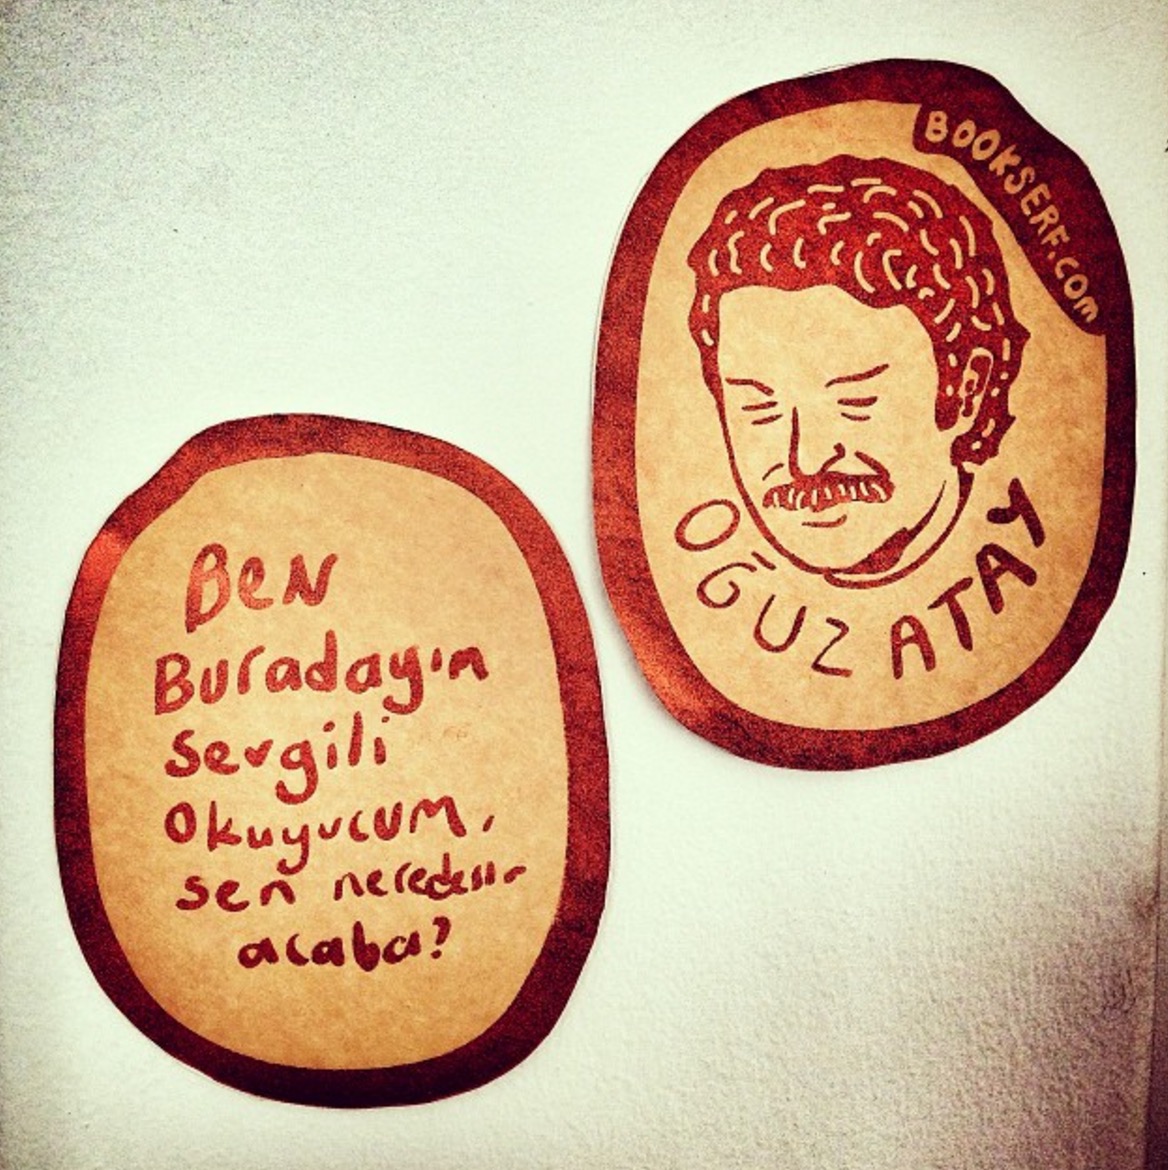 BOOKSERF.COm
OĞUZ ATAY
BeN
Buradayım
Sevgili
Okuyucum,
sen neredesin
acaba?